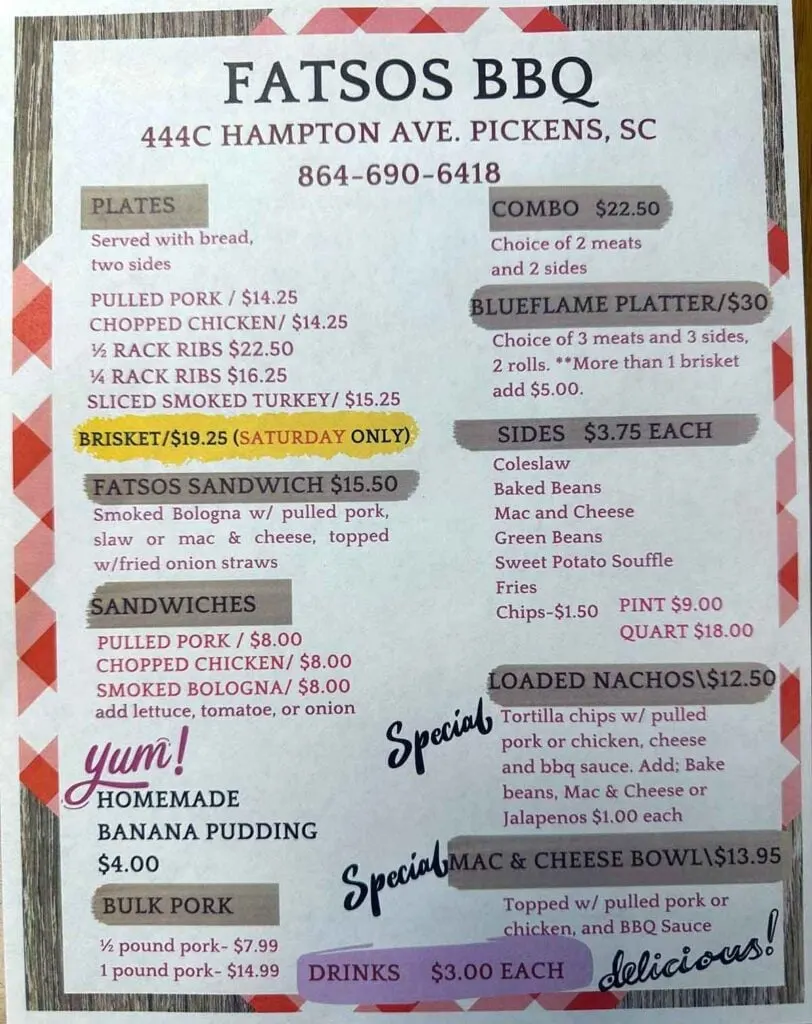 FATSOS BBQ
444C HAMPTON AVE. PICKENS, SC
864-690-6418
PLATES
Served with bread,
two sides
PULLED PORK / $14.25
CHOPPED CHICKEN/ $14.25
½ RACK RIBS $22.50
¼ RACK RIBS $16.25
SLICED SMOKED TURKEY/ $15.25
BRISKET/$19.25 (SATURDAY ONLY)
FATSOS SANDWICH $15.50
Smoked Bologna w/ pulled pork,
slaw or mac & cheese, topped
w/fried onion straws
SANDWICHES
PULLED PORK / $8.00
CHOPPED CHICKEN/ $8.00
SMOKED BOLOGNA/ $8.00
add lettuce, tomatoe, or onion
yum!
HOMEMADE
BANANA PUDDING
$4.00
BULK PORK
½ pound pork- $7.99
1 pound pork- $14.99
COMBO $22.50
Choice of 2 meats
and 2 sides
BLUEFLAME PLATTER/$30
Choice of 3 meats and 3 sides,
2 rolls. **More than 1 brisket
add $5.00.
SIDES $3.75 EACH
Coleslaw
Baked Beans
Mac and Cheese
Green Beans
Sweet Potato Souffle
Fries
Chips-$1.50
PINT $9.00
QUART $18.00
LOADED NACHOS\$12.50
Special
Tortilla chips w/ pulled
pork or chicken, cheese
and bbq sauce. Add; Bake
beans, Mac & Cheese or
Jalapenos $1.00 each
Special
MAC & CHEESE BOWL\$13.95
Topped w/ pulled pork or
chicken, and BBQ Sauce
delicious!
DRINKS $3.00 EACH